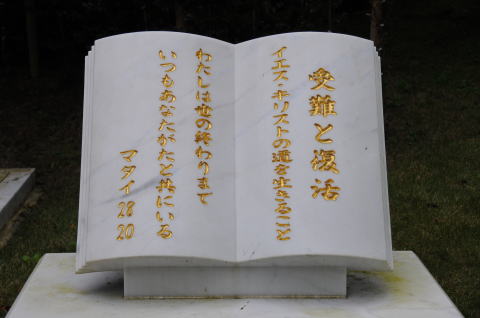 受難と復活
イエス・キリストの道を生きること
わたしは世の終わりまで
いつもあなたがたと共にいる
マタイ 28
20